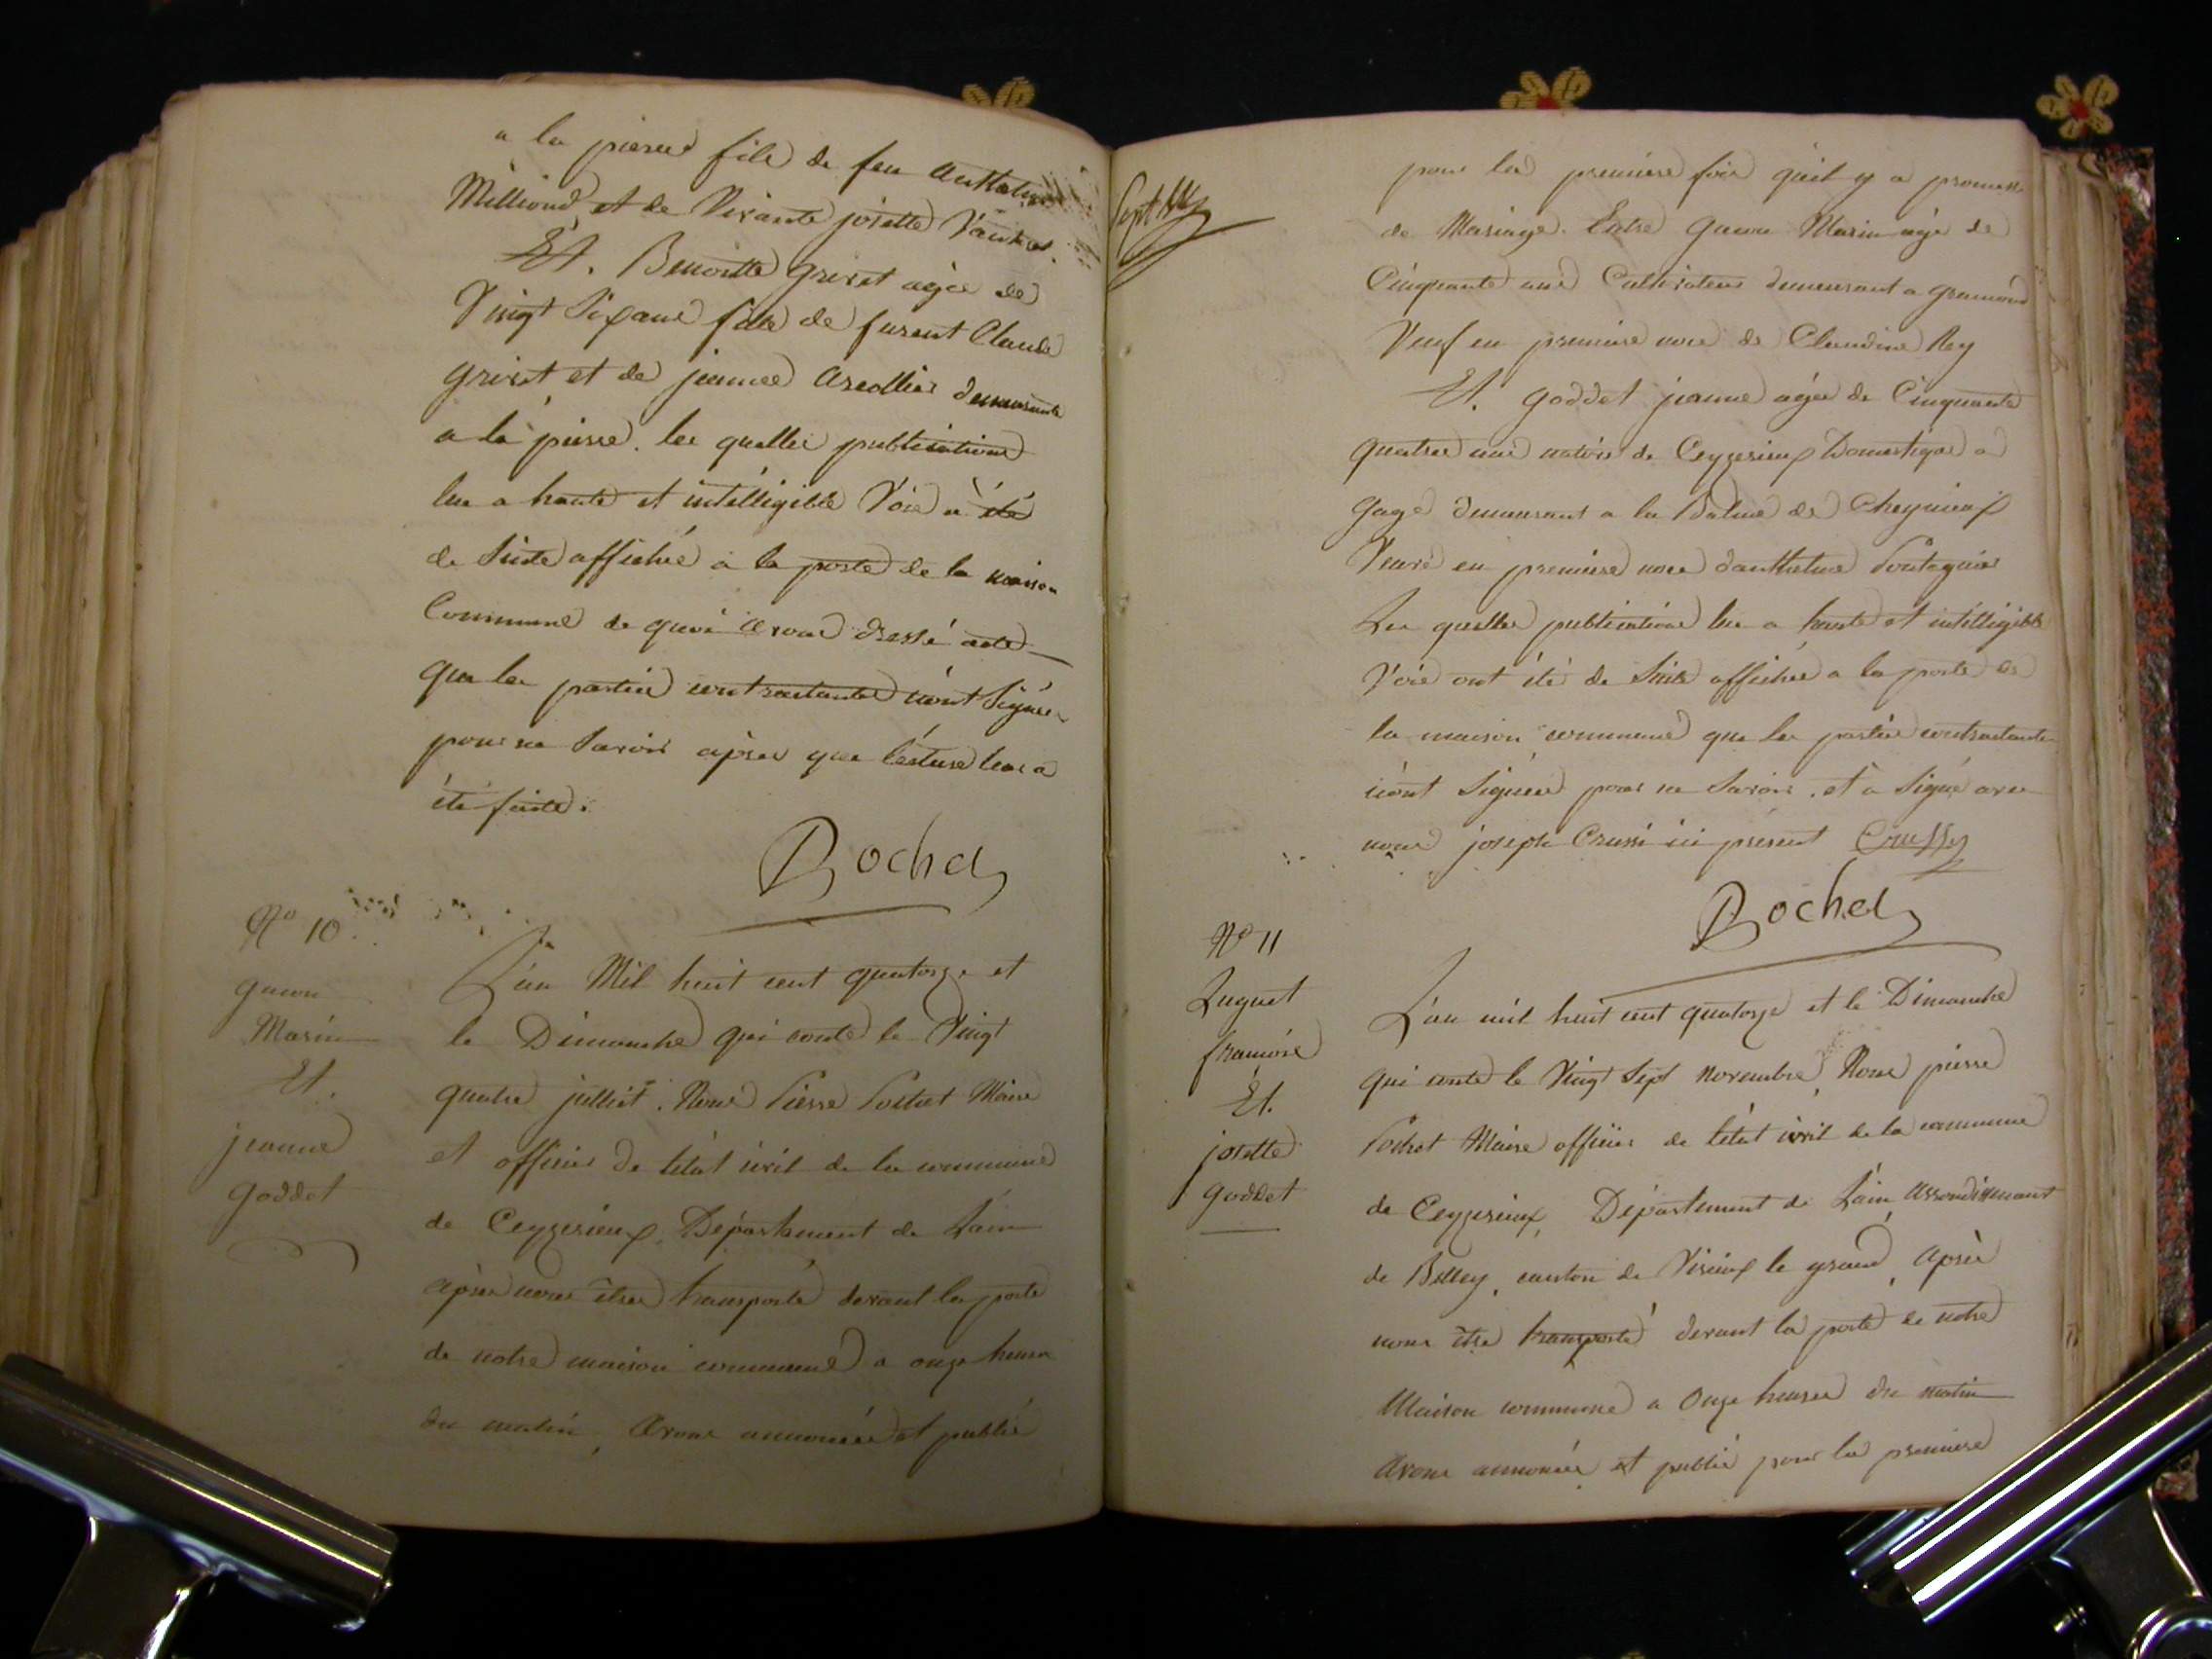 a la pierre fils de feu Anthelme
Milliond et de Vivante josette
Et. Benoitte grivet agée de
Vingt Six ans fille de furent Claude
grivet et de jeanne demeurante
a la pierre. les quelles publications
lue a haute et intélligible Voie a été
de Suite affichée a la porte de la maison
Commune de quoi avons dressé acte
que les parties contractantes n'ont Signées
pour ne Savoir aprés que lecture leur a
été faite.
Pochet
No 10
gacon
Marin
Et.
jeanne
goddet
L'an Mil huit cent quatorze et
le Dimanche qui conte le Vingt
quatre julliet. Nous Pierre Pochet Maire
et officier de l'état civil de la commune
de Ceyzerieux, Département de Lain
aprés nous étre transporté devant la porte
de notre maison commune a onze heures
du matin, avons annoncée et publié
Sept
pour la premiere fois qu'il y a promesse
de Mariage. Entre gacon Marin agé de
Cinquante ans Cultivateur demeurant a gramond
Veuf en premiere noce de Claudine Rey
Et. goddet jeanne agée de Cinquante
quatre ans native de Ceyzerieux Domestique a
gage demeurant a la Balme de Cheynieux
Veuve en premiere noce d'anthelme
Les quelles publications lue a haute et intélligible
Voie ont été de Suite affichée a la porte de
la maison commune que les parties contractantes
n'ont Signées pour ne Savoir. et a Signé avec
nous joseph Crussi ici présent Crussy
Pochet
No 11
Luguet
francois
Et.
josette
goddet
L'an mil huit cent quatorze et le Dimanche
qui conte le Vingt Sept novembre Nous pierre
Pochet Maire officier de l'état civil de la commune
de Ceyzerieux, Département de Lain, arrondissement
de Belley, canton de Virieux le grand, aprés
nous étre transporté devant la porte de notre
Maison commune a Onze heures du matin
Avons annoncée et publié pour la premiere